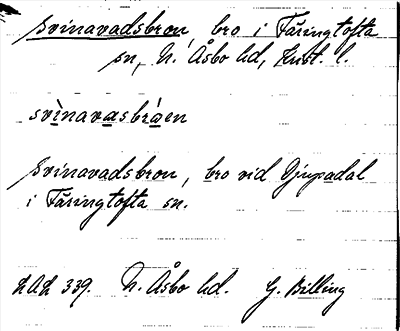 Svinavadsbron, bro i Färingtofta
sn, N. Åsbo hd, Krist. l.
svìnavasbrá̱en
Svinavadsbron, bro vid Djupadal
i Färingtofta sn.
LAL 339. N. Åsbo hd. G. Billing